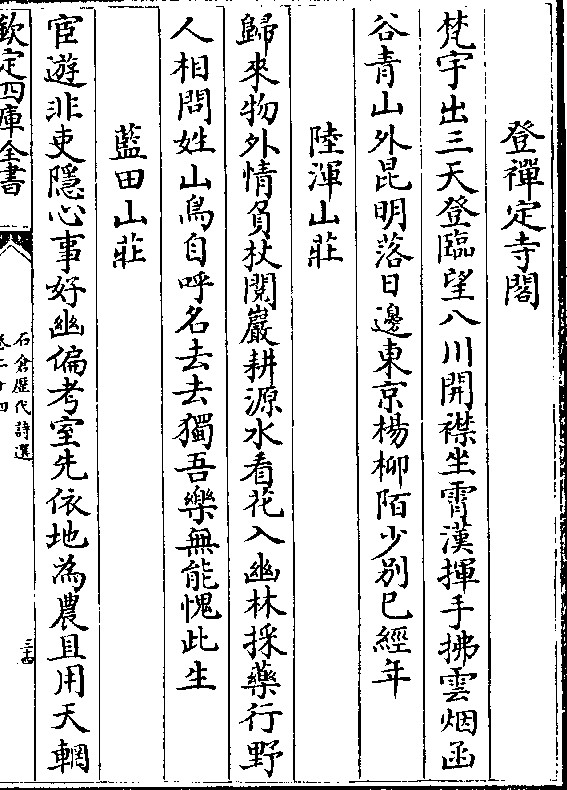 登禪定寺閣
梵宇出三天登臨望八川開襟坐霄漢揮手拂雲烟函
谷青山外昆明落日邊東京楊柳陌少別已經年
陸渾山莊
歸來物外情負杖閱巖耕源水看花入幽林採藥行野
人相問姓山鳥自呼名去去獨吾樂無能愧此生
藍田山莊
宦遊非吏隱心事好幽偏考室先依地為農且用天輞
欽定四庫全書
石倉歷代詩選
卷二十四
三十四